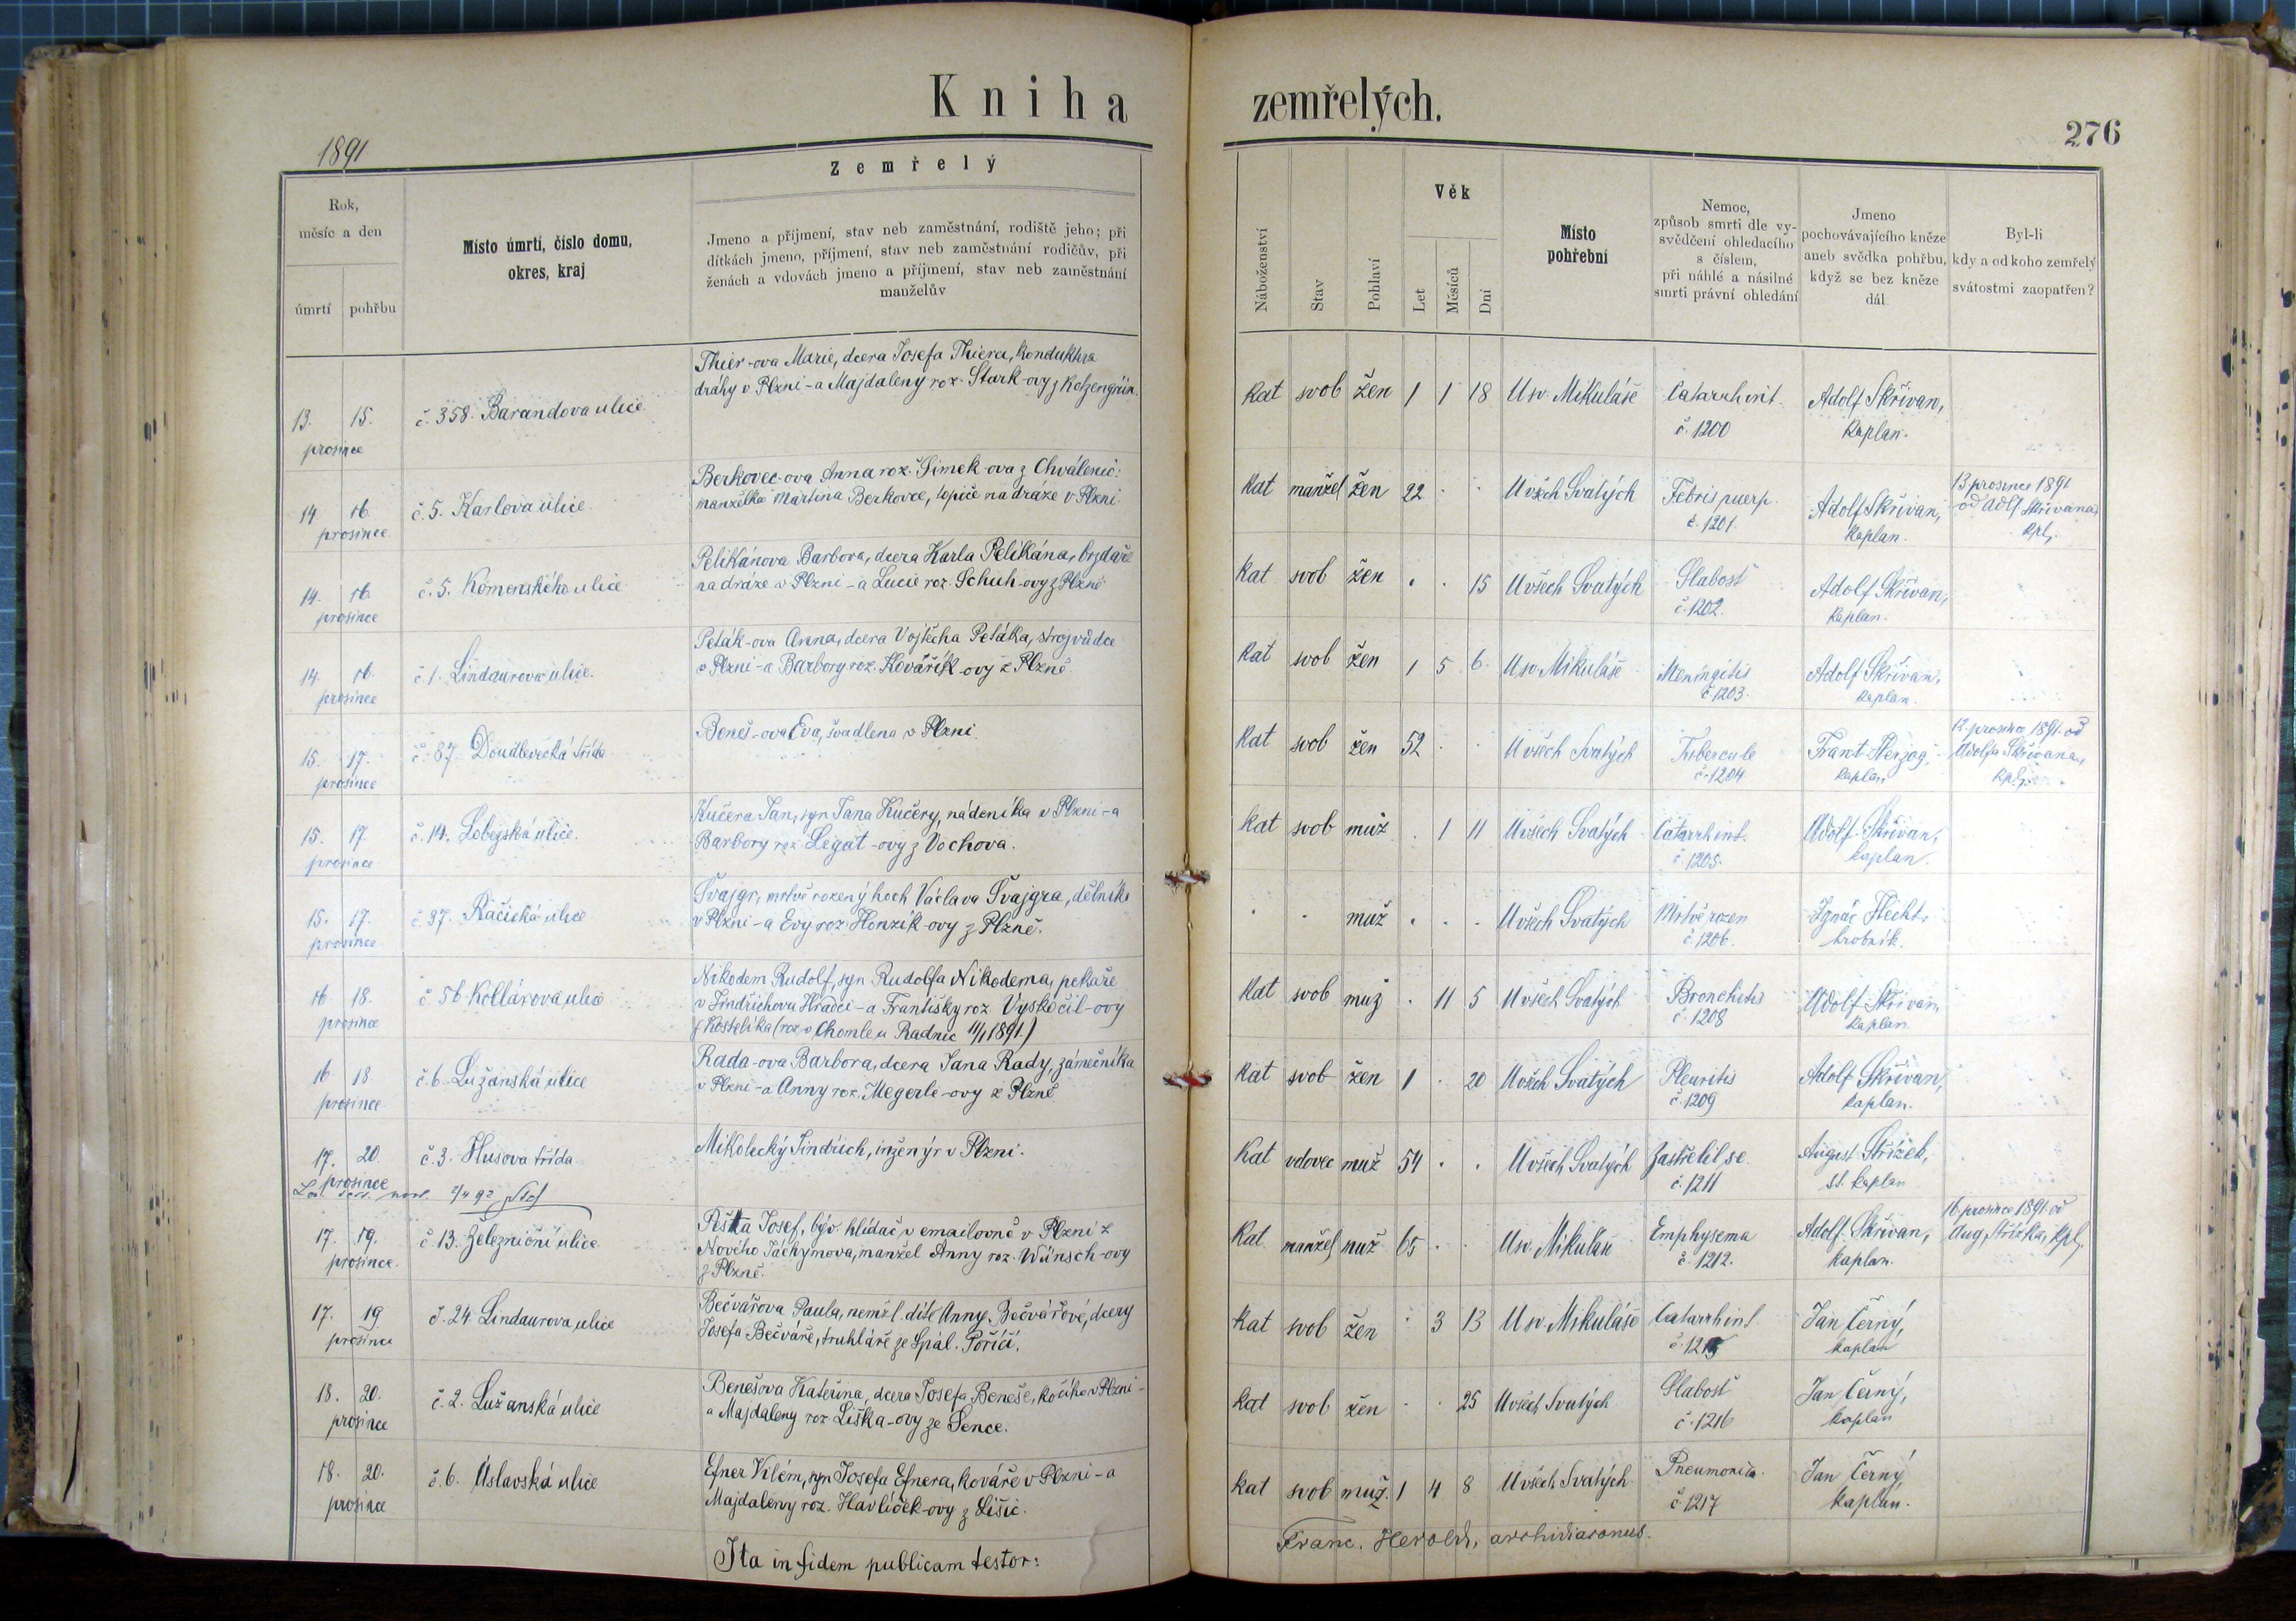 Kniha zemřelých.
276
1891
Zemřelý
Rok,
měsíc a den
úmrtí
pohřbu
Místo úmrtí, číslo domu,
okres, kraj
Jmeno a příjmení, stav neb zaměstnání, rodiště jeho; při
dítkách jmeno, příjmení, stav neb zaměstnání rodičův, při
ženách a vdovách jmeno a příjmení, stav neb zaměstnání
manželův
Náboženství
Stav
Pohlaví
Věk
Let
Měsíců
Dní
Místo
pohřební
Nemoc,
způsob smrti dle vy-
svědčení ohledacího
s číslem,
při náhlé a násilné
smrti právní ohledání
Jmeno
pochovávajícího kněze
aneb svědka pohřbu,
když se bez kněze
dál.
Byl-li
kdy a od koho zemřelý
svátostmi zaopatřen?
13. 15.
prosince
č. 358. Barandova ulice
Thier-ova Marie, dcera Josefa Thiera, konduktéra
dráhy v Plzni - a Majdaleny roz. Stark-ovy z Kotzengrün.
kat svob žen 1 1 18 U sv. Mikuláše Catarrh int. Adolf Skřivan,
č. 1200 kaplan.
14 16.
prosince
č. 5. Karlova ulice
Berkovec-ova Anna roz. Šimek-ova z Chválenic:
manželka Martina Berkovce, topiče na dráze v Plzni
kat manžel žen 22 U všech Svatých Febris puerp. Adolf Skřivan,
č. 1201. kaplan.
13 prosince 1891
od Adlf Skřivana,
kpl.
14. 16.
prosince
č. 5. Komenského ulice
Pelikánova Barbora, dcera Karla Pelikána, brzdaře
na dráze v Plzni - a Lucie roz. Schuh-ovy z Plzně
kat svob žen 15 U všech Svatých Slabosť Adolf Skřivan,
č. 1202. kaplan.
14. 16.
prosince
č. 1. Lindaurova ulice.
Peták-ova Anna, dcera Vojtěcha Petáka, strojvůdce
v Plzni - a Barbory roz. Kovářík-ovy z Plzně
kat svob žen 1 5 6. U sv. Mikuláše Meningitis Adolf Skřivan,
č 1203. kaplan.
15. 17.
prosince
č. 87. Doudlevecká třída
Beneš-ova Eva, švadlena v Plzni
kat svob žen 52 U všech Svatých Tubercule Frant Herzog,
č. 1204 kaplan
12 prosince 1891. od
Adolfa Skřivana,
kpl.
15. 17.
prosince
č. 14. Lobezská ulice.
Kučera Jan, syn Jana Kučery, nádeníka v Plzni - a
Barbory roz Legát-ovy z Vochova.
kat svob muž . 1 11 U všech Svatých Catarrh int. Adolf Skřivan,
č. 1205. kaplan.
15. 17.
prosince
č 37. Račická ulice
Švajgr, mrtvě rozený hoch Václava Švajgra, dělníka
v Plzni - a Evy roz. Honzík-ovy z Plzně.
muž U všech Svatých Mrtvě rozen Ignác Hecht,
č. 1206. hrobník.
16 18.
prosince
č 56 Kollárova ulice
Nikodem Rudolf, syn Rudolfa Nikodema, pekaře
v Jindřichovu Hradci - a Františky roz. Vyskočil-ovy
z Kostelíka (roz. v Chomle u Radnic 11/1 1891)
kat svob muž . 11 5 U všech Svatých Bronchitis Adolf Skřivan,
č. 1208 kaplan.
16 18
prosince
č. 6. Lužanská ulice
Rada-ova Barbora, dcera Jana Rady, zámečníka
v Plzni - a Anny roz. Megerle-ovy z Plzně
kat svob žen 1 . 20 U všech Svatých Pleuritis Adolf Skřivan,
č. 1209 kaplan.
17. 20.
prosince
č. 3. Husova třída
Mikolecký Jindřich, inženýr v Plzni.
kat vdovec muž 54 . . U všech Svatých Zastřelil se. August Střížek,
č. 1211 st. kaplan
17. 19.
prosince.
č 13. Železniční ulice
Pešta Josef, býv. hlídač v emailovně v Plzni z
Nového Jáchymova, manžel Anny roz. Wünsch-ovy
z Plzně.
kat manžel muž 65 . . U sv. Mikuláše Emphysema Adolf Skřivan,
č. 1212. kaplan.
16. prosince 1891. od
Aug. Střížka, kpl.
17. 19
prosince
č. 24 Lindaurova ulice
Bečvářova Paula, nemžl. dítě Anny Bečvářové, dcery
Josefa Bečváře, truhláře ze Spál. Poříčí.
kat svob žen . 3 13 U sv. Mikuláše Catarrh int. Jan Černý,
č. 1215 kaplan
18. 20.
prosince
č. 2. Lužanská ulice
Benešova Kateřina, dcera Josefa Beneše, kočího v Plzni -
a Majdaleny roz Liška-ovy ze Sence.
kat svob žen . . 25 U všech Svatých Slabosť Jan Černý,
č. 1216 kaplan
18. 20.
prosince
č. 6. Úslavská ulice
Efner Vilém, syn Josefa Efnera, kováře v Plzni - a
Majdaleny roz. Havlíček-ovy z Lišic.
kat svob muž. 1 4 8 U všech Svatých Pneumonia Jan Černý
č. 1217 kaplan.
Ita in fidem publicam testor:
Franc. Herold, archidiaconus.